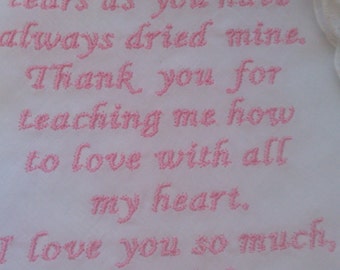 tears as you have
always dried mine.
Thank you for
teaching me how
to love with all
my heart.
I love you so much,